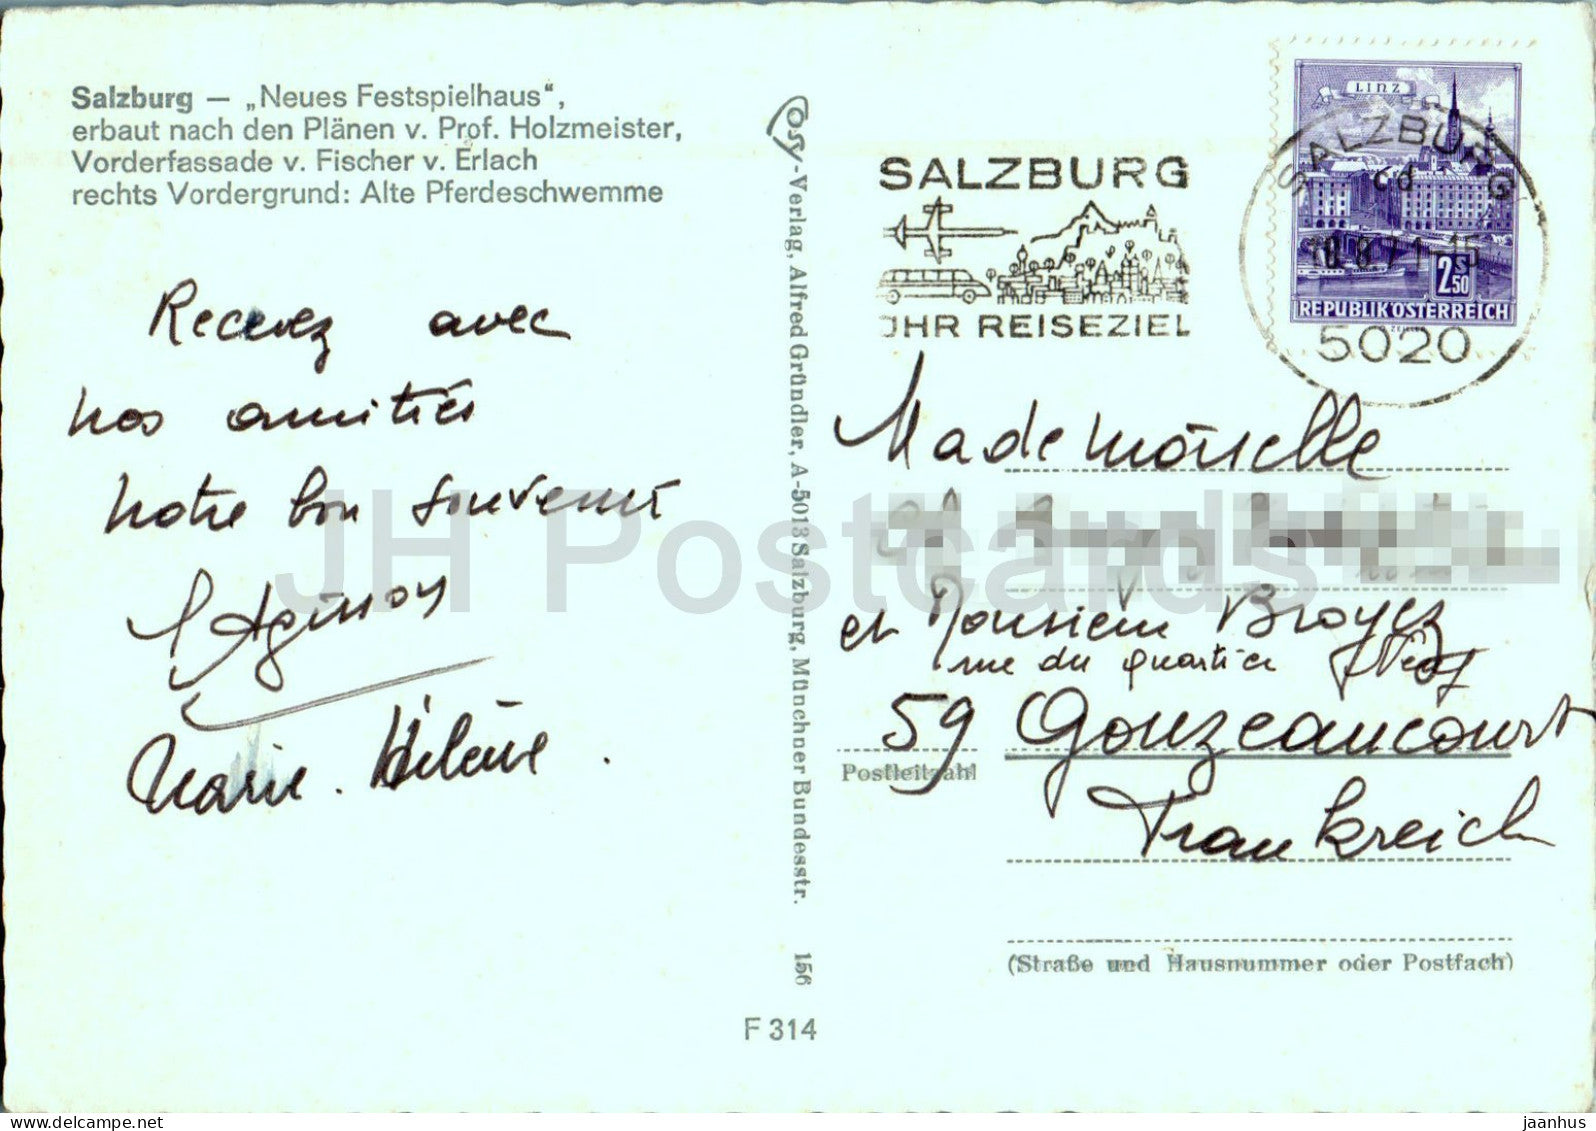 Salzburg — „Neues Festspielhaus",
erbaut nach den Plänen v. Prof. Holzmeister,
Vorderfassade v. Fischer v. Erlach
rechts Vordergrund: Alte Pferdeschwemme
Recevez avec
nos amitiés
notre bon souvenir
Marie-Hélène.
Cosy-Verlag, Alfred Gründler, A-5013 Salzburg, Münchner Bundesstr. 156
F 314
SALZBURG
JHR REISEZIEL
LINZ
2S50
REPUBLIK ÖSTERREICH
SALZBURG
5020
Mademoiselle
et Monsieur Broyez
rue du quartier
59 Gouzeaucourt
Postleitzahl
Frankreich
(Straße und Hausnummer oder Postfach)
JH Postcards
delcampe.net
jaanhus